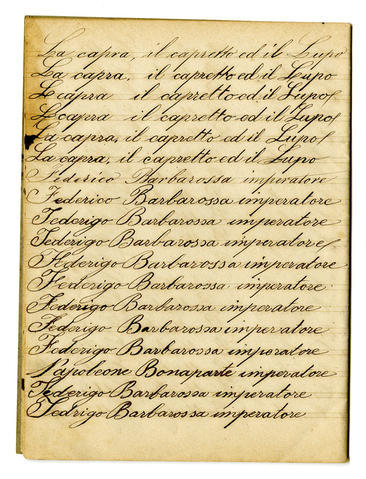 La capra, il capretto ed il Lupo
La capra, il capretto ed il Lupo
La capra il capretto ed il Lupo
La capra il capretto ed il Lupo
La capra, il capretto ed il Lupo
La capra, il capretto ed il Lupo
Federico Barbarossa imperatore
Federico Barbarossa imperatore
Federigo Barbarossa imperatore
Federigo Barbarossa imperatore
Federigo Barbarossa imperatore
Federigo Barbarossa imperatore
Federigo Barbarossa imperatore
Federigo Barbarossa imperatore
Federigo Barbarossa imporatore
Napoleone Bonaparte imperatore
Federigo Barbarossa imperatore
Fedrigo Barbarossa imperatore